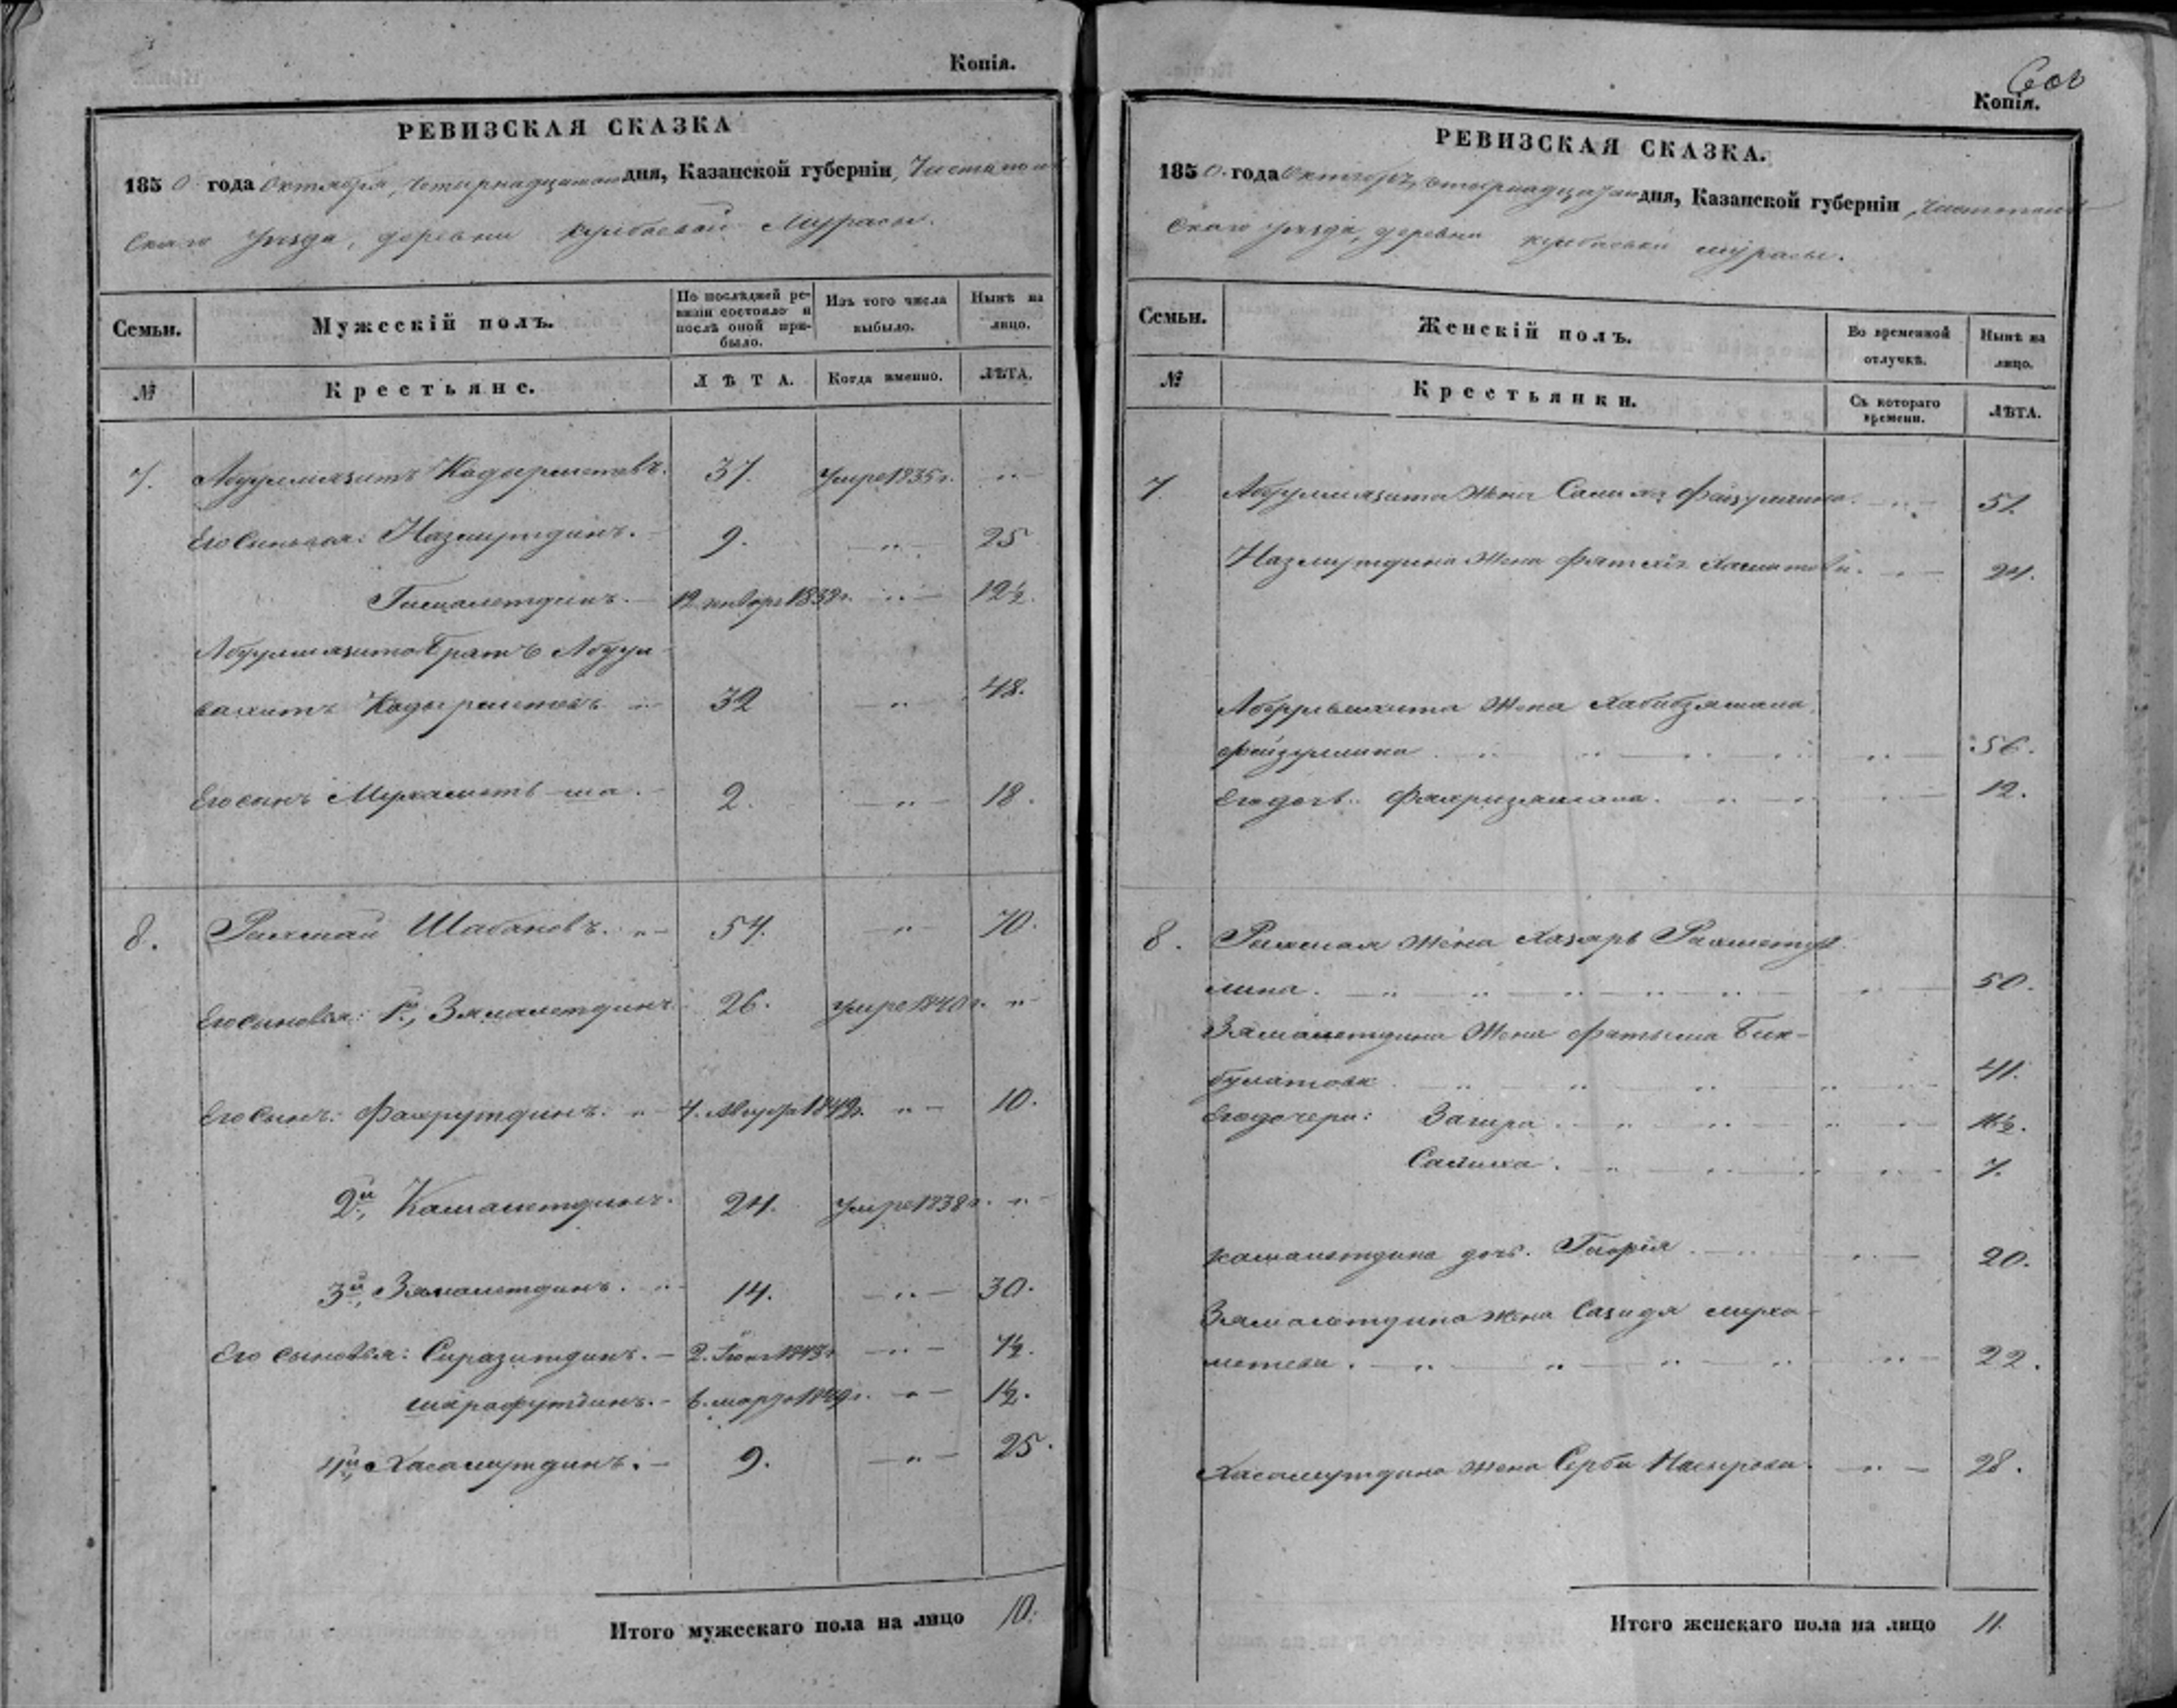 Копія.
РЕВИЗСКАЯ СКАЗКА
1850 года Октября, четырнадцатаго дня, Казанской губерніи, Чистополь
скаго уѣзда, деревни Кулбаевой Мурасы.
Семьи.
Мужескій полъ.
По послѣдней ре-
визіи состояло и
послѣ оной при-
было.
Изъ того числа
выбыло.
Нынѣ на
лицо.
№
Крестьяне.
ЛѢТА.
Когда именно.
ЛѢТА.
7. Абдулмязитъ Кадырметевъ. 37. умре 1835 г. „
Его сыновья: Назмутдинъ. 9. „ 25
Гималетдинъ. 12 января 1838 г. „ 12½.
Абдулмязита братъ Абдул
вахитъ Кадырметевъ „ 32 „ 48.
Его сынъ Мухаметь-ша. 2. „ 18.
8. Рахмай Шабановъ. „ 54. „ 70.
Его сыновья: 1й, Зямалетдинъ 26. умре 1840 г. „
Его сынъ: Фахрутдинъ. „ 4. „ 10.
2й, Камалетдинъ. 24. умре 1838 г. „
3й, Зямалетдинъ. „ 14. „ 30.
Его сыновья: Сиразитдинъ. 2. Іюня 1843 г. „ 7½.
Шарафутдинъ. 6. марта 1849 г. „ 1½.
4й, Хасамутдинъ. 9. „ 25.
Итого мужескаго пола на лицо 10.
Копія.
РЕВИЗСКАЯ СКАЗКА.
1850 года Октября, четырнадцатаго дня, Казанской губерніи, Чистополь
скаго уѣзда, деревни Кулбаевой Мурасы.
Семьи.
Женскій полъ.
Во временной
отлучкѣ.
Нынѣ на
лицо.
№
Крестьянки.
Съ котораго
времени.
ЛѢТА.
7. Абдулмязита жена Фäйзуллина. „ 51.
Назмутдина жена Хаметова. „ 24.
Абдулвахита жена Хабибзямала
Файзуллина „ 56.
Его дочь: Фахризямала. „ 12.
8. Рахмая жена Хазярь Рахмету
лина. „ 50.
Зямалетдина жена Фатыма Бик-
булатова „ 41.
Его дочери: Загира. „ 11½.
Салиха. „ 7.
Камалетдина дочь. „ 20.
Зямалетдина жена Сазидя Муха-
метева. „ 22.
Хасамутдина жена Сярби Насырова „ 28.
Итого женскаго пола на лицо 11.